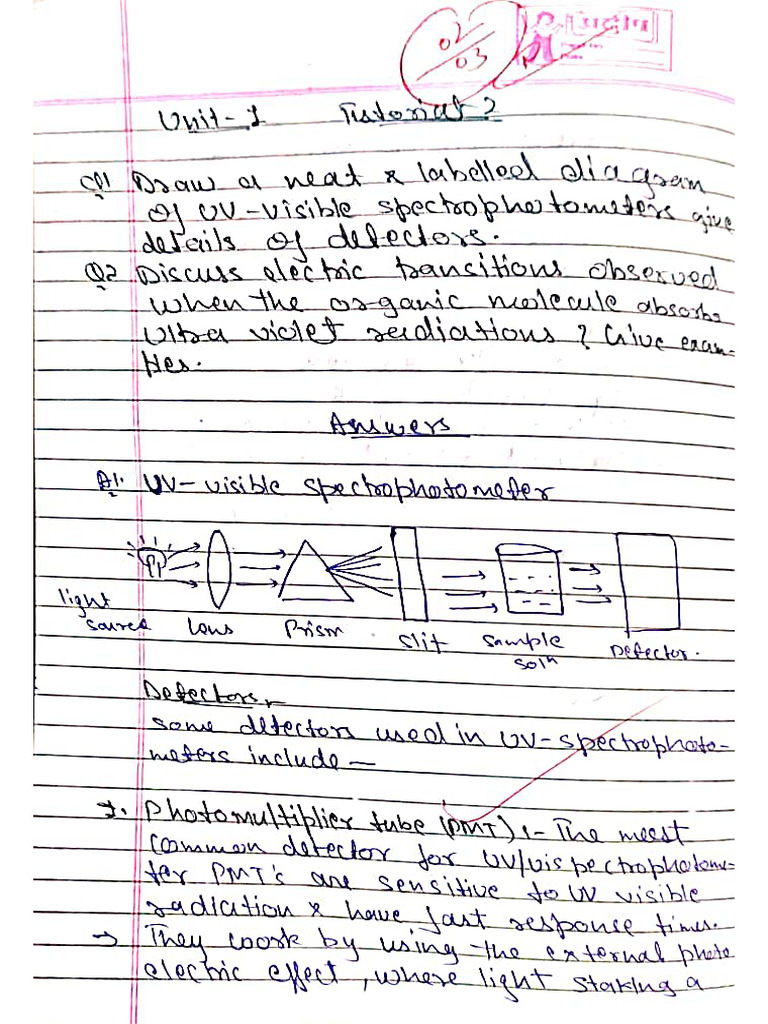 02/03
Unit-1 Tutorial 2
Q1 Draw a neat & labelled diagram
of UV-visible spectrophotometers give
details of detectors.
Q2 Discuss electric transitions observed
when the organic molecule absorbs
ultra violet radiations ? Give exam-
ples.
Answers
A1. UV-visible spectrophotometer
light
source Lens Prism Slit Sample
soln Detector.
Detectors,
some detectors used in UV-spectrophoto-
meters include —
I. Photomultiplier tube (PMT) :- The meest
common detector for UV/vispectrophotome-
ter PMT's are sensitive to UV visible
radiation & have fast response times.
→ They work by using the external photo
electric effect, where light staking a